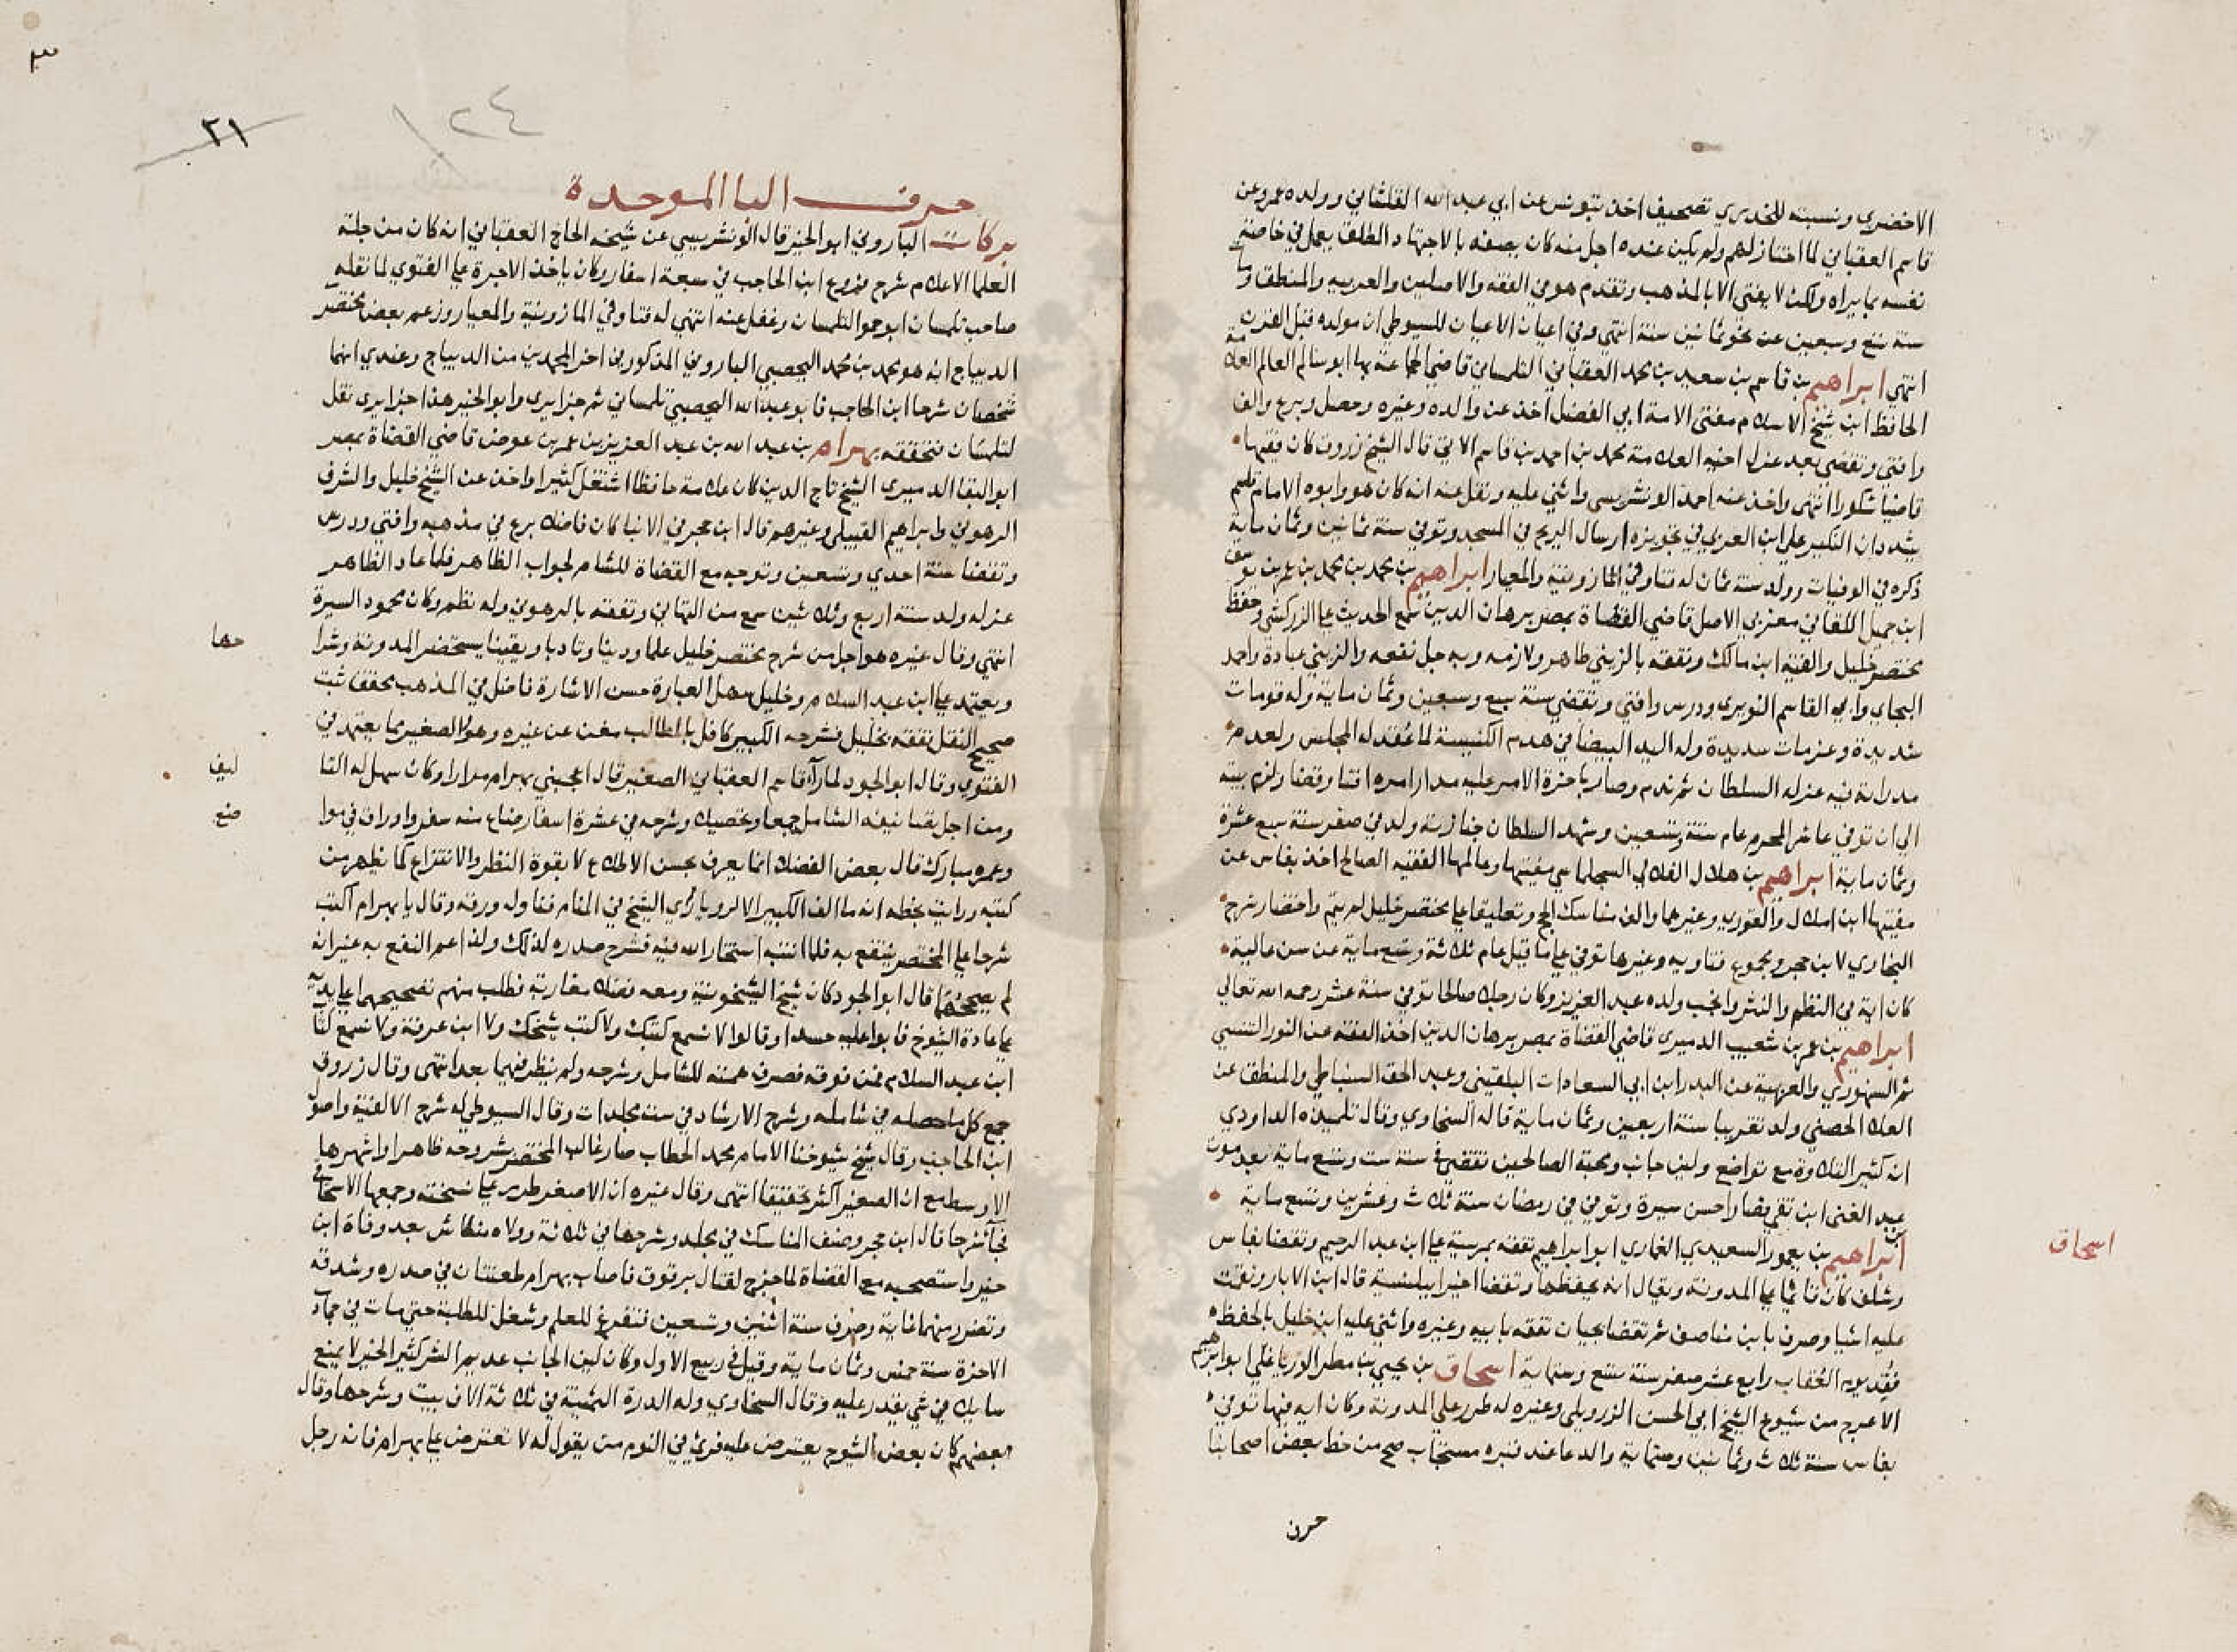 الاخضري ونسبته للخدري تصحيف اخذ بتونس عن ابي عبد الله القلشاني وولده عمر وعن
قاسم العقباني لما اجتاز لهم ولم يكن عنده اجل منه كان يصفه بالاجتهاد المطلق يعمل في خاصة
نفسه بما يراه ولكن لا يفتي الا بالمذهب وتقدم هو في الفقه والاصلين والعربيه والمنطق ومات
سنة تسع وسبعين عن نحو ثمانين سنة انتهي وفي اعيان الاعيان للسيوطي ان مولده قبل القرن
انتهي ابراهيم بن قاسم بن سعيد بن محمد العقباني التلمساني قاضي الجماعة بها ابو سالم العالم العلامة
الحافظ ابن شيخ الاسلام مفتي الامة ابي الفضل اخذ عن والده وغيره وحصل وبرع والف
وافتي وتقضي بعد عزل اخيه العلامة محمد بن احمد بن قاسم الاتي قال الشيخ زروق كان فقيها
قاضيا شكورا انتهي واخذ عنه احمد الونشريسي واثني عليه ونقل عنه انه كان هو وابوه الامام قاسم
يشددان النكير علي ابن العربي في تجويزه ارسال الريح في المسجد وتوفي سنة ثمانين وثمان ماية
ذكره في الوفيات وولد سنة ثمان له فتاوي في المازونية والمعيار ابراهيم بن محمد بن محمد بن عمر بن يوسف
ابن جميل اللقاني مغربي الاصل قاضي القضاة بمصر برهان الدين سمع الحديث علي الزركشي وحفظ
مختصر خليل والفية ابن مالك وتفقه بالزيني طاهر ولازمه وبه جل نفعه والزيني عبادة واحمد
البجاي وابي القاسم النويري ودرس وافتي وتقضي سنة سبع وسبعين وثمان ماية وله قومات
شديدة وعزمات سديدة وله اليد البيضا في هدم الكنيسة لما عقد له المجلس ولعدم
مداراته فيه عزله السلطان ثم ندم وصار باخرة الامر عليه مدار امره افتا وقضا ولزم بيته
الي ان توفي عاشر المحرم عام ستة وتسعين وشهد السلطان جنازته ولد في صفر سنة سبع عشرة
وثمان ماية ابراهيم بن هلال الفلالي السجلماسي مفتيها وعالمها الفقيه الصالح اخذ بفاس عن
مفتيها ابن املال والقوري وغيرهما والف مناسك الحج وتعليقا علي مختصر خليل لم يتم واختصار شرح
البخاري لابن حجر ومجموع فتاويه وغيرها توفي علي ما قيل عام ثلاثة وتسع ماية عن سن عالية
كان اية في النظم والنثر وانجب ولده عبد العزيز وكان رجلا صالحا توفي سنة عشر رحمه الله تعالي
ابراهيم بن عمر بن شعيب الدميري قاضي القضاة بمصر برهان الدين اخذ الفقه عن النور التنسي
ثم السنهوري والعربية عن البدر ابن ابي السعادات البلقيني وعبد الحق السنباطي والمنطق عن
العلا الحصني ولد تقريبا سنة اربعين وثمان ماية قاله السخاوي وقال تلميذه الداودي
انه كثير التلاوة مع تواضع ولين جانب ومحبة الصالحين تقضي في سنة ست وتسع ماية بعد موت
عبد الغني ابن تقي قصارا حسن سيرة وتوفي في رمضان سنة ثلاث وعشرين وتسع ماية
ابراهيم بن يعمور السعيدي الغماري ابو ابراهيم تفقه بمرسية علي ابن عبد الرحيم وتقضا بفاس
وشلف كان قائما علي المدونة ويقال انه يحفظها وتقضا اخيرا ببلنسية قال ابن الابار ونقمت
عليه اشيا وصرف بابن مناصف ثم تقضا بجيان تفقه بابيه وغيره واثني عليه ابن خليل بالحفظ
فقد يوم العقاب رابع عشر صفر سنة تسع وستماية اسحاق بن يحيي بن مطر الورياغلي ابو ابراهيم
الاعرج من شيوخ الشيخ ابي الحسن الزرويلي وغيره له طرر علي المدونة وكان ايه فيها توفي
بفاس سنة ثلاث وثمانين وستماية والدعا عند قبره مستجاب صح من خط بعض اصحابنا
حرف
اسحاق
٣
٢١
٢٤
حرف البا الموحدة
بركات الباروني ابو الخير قال الونشريسي عن شيخه الحاج العقباني انه كان من جلة
العلما الاعلام شرح فروع ابن الحاجب في سبعة اسفار وكان ياخذ الاجرة علي الفتوي لما نقله
صاحب تلمسان ابو حمو التلمسان وغفل عنه انتهي له فتاوي في المازونية والمعيار وزعم بعض مختصر
الديباج انه هو محمد بن محمد اليحصبي الباروني المذكور في اخر المحمدين من الديباج وعندي انهما
شخصان شرحا ابن الحاجب فابو عبد الله اليحصبي تلمساني ثم جزايري وابو الخير هذا جزايري نقل
لتلمسان فتحققه بهرام بن عبد الله بن عبد العزيز بن عمر بن عوض قاضي القضاة بمصر
ابو البقا الدميري الشيخ تاج الدين كان علامة حافظا اشتغل كثيرا واخذ عن الشيخ خليل والشرف
الرهوني وابراهيم القبيلي وغيرهم قال ابن حجر في الانبا كان فاضلا برع في مذهبه وافتي ودرس
وتقضا سنة احدي وتسعين وتوجه مع القضاة للشام لجواب الظاهر فلما عاد الظاهر
عزله ولد سنة اربع وثلاثين سمع من البياني وتفقه بالرهوني وله نظم وكان محمود السيرة
انتهي وقال غيره هو اجل من شرح مختصر خليل علما ودينا وتادبا ويقينا يستحضر المدونة وشرا
حها
ويعتمد علي ابن عبد السلام وخليل سهل العبارة حسن الاشارة فاضل في المذهب محقق ثبت
صحيح النقل تفقه بخليل فشرحه الكبير كافل بالمطالب مغن عن غيره وعول الصغير مما يعتمد في
الفتوي وقال ابو الجود لما راه قاسم العقباني الصغير قال اعجبني بهرام مرارا وكان سهل له التا
ليف
ومن اجل تصانيفه الشامل جمعا وتحصيلا وشرحه في عشرة اسفار ضاع منه سفر واوراق في موا
ضع
وعمره مبارك قال بعض الفضلا انما يعرف بحسن الاطلاع لا بقوة النظر والانتزاع كما يظهر من
كتبه ورايت بخطه انه ما الف الكبير الا لرويا راي الشيخ في المنام فناوله ورقة وقال يا بهرام اكتب
شرحا علي المختصر ينتفع به فلما انتبه استخار الله فيه فشرح صدره لذلك ولذا عم النفع به غير انه
لم يصححهما قال ابو الجود كان شيخ الشيخونية ومعه فضلا مغاربة فطلب منهم تصحيحهما علي يديه
علي عادة الشيوخ فابوا عليه حسدا وقالوا لا نسمع كتبك ولا كتب شيخك ولا ابن عرفة ولا نسمع كتا
ابن عبد السلام فمن فوقه فصرف همته للشامل وشرحه ولم ينظر فيهما بعد انتهي وقال زروق
جمع كل ما حصله في شامله وشرح الارشاد في ست مجلدات وقال السيوطي له شرح الالفية واصول
ابن الحاجب وقال شيخ شيوخنا الامام محمد الحطاب صار غالب المختصر بشروحه ظاهرا واشهرها
الاوسط مع ان الصغير اكثر تحقيقا انتهي وقال غيره ان الاصغر طرر علي نسخته وجمعها الاسحاقي
فجا شرحا قال ابن حجر وصنف المناسك في مجلد وشرحها في ثلاثة وولاه منطاش بعد وفاة ابن
خير واستصحبه مع القضاة لما خرج لقتال برقوق فاصاب بهرام طعنتان في صدره وشدقه
وتضرر منهما غاية وصرف سنة اثنين وتسعين فتفرغ للعلم وشغل للطلبة حتي مات في جماد
الاخرة سنة خمس وثمان ماية وقيل في ربيع الاول وكان لين الجانب عديم الشر كثير الخير لا يمنع
سايلا في شي يقدر عليه وقال السخاوي وله الدرة الثمينة في ثلاثة الاف بيت وشرحها وقال
بعضهم كان بعض الشيوخ يعترض عليه فرئي في النوم من يقول له لا تعترض علي بهرام فانه رجل